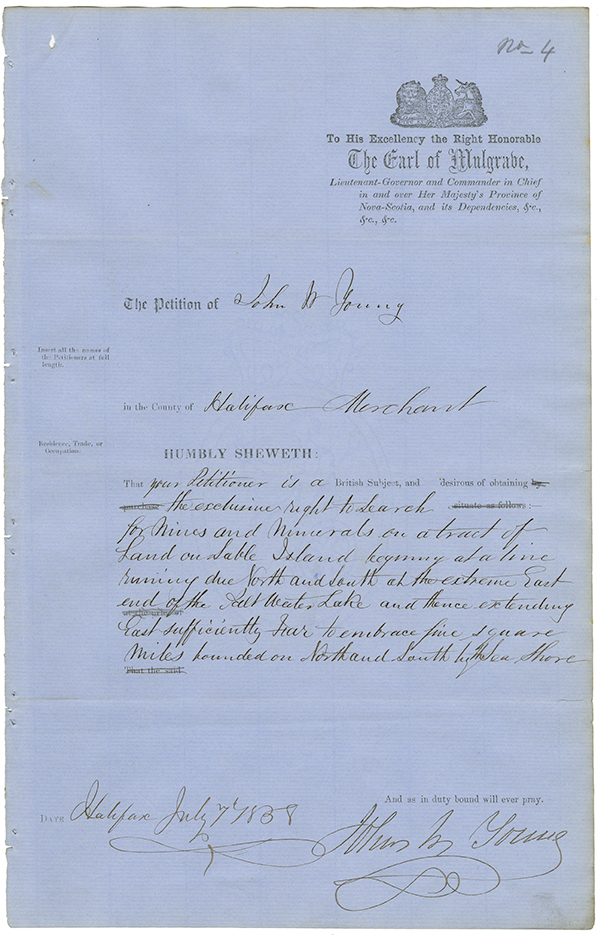 No- 4
To His Excellency the Right Honorable
The Earl of Mulgrave,
Lieutenant-Governor and Commander in Chief
in and over Her Majesty's Province of
Nova-Scotia, and its Dependencies, &c.,
&c., &c.
The Petition of John W Young
Insert all the names of
the Petitioners at full
length.
in the County of Halifax Merchant
Residence, Trade, or
Occupation.
HUMBLY SHEWETH:
That your Petitioner is a British Subject, and desirous of obtaining by
purchase the exclusive right to Search situate as follows:
for Mines and Minerals on a tract of
Land on Sable Island begining at a line
runing due North and South at the extreme East
end of the Salt Water Lake and thence extending
East sufficiently Far to embrace five square
Miles bounded on North and South by the Sea Shore
That the said
And as in duty bound will ever pray.
DATE Halifax July 7th 1858
John W Young